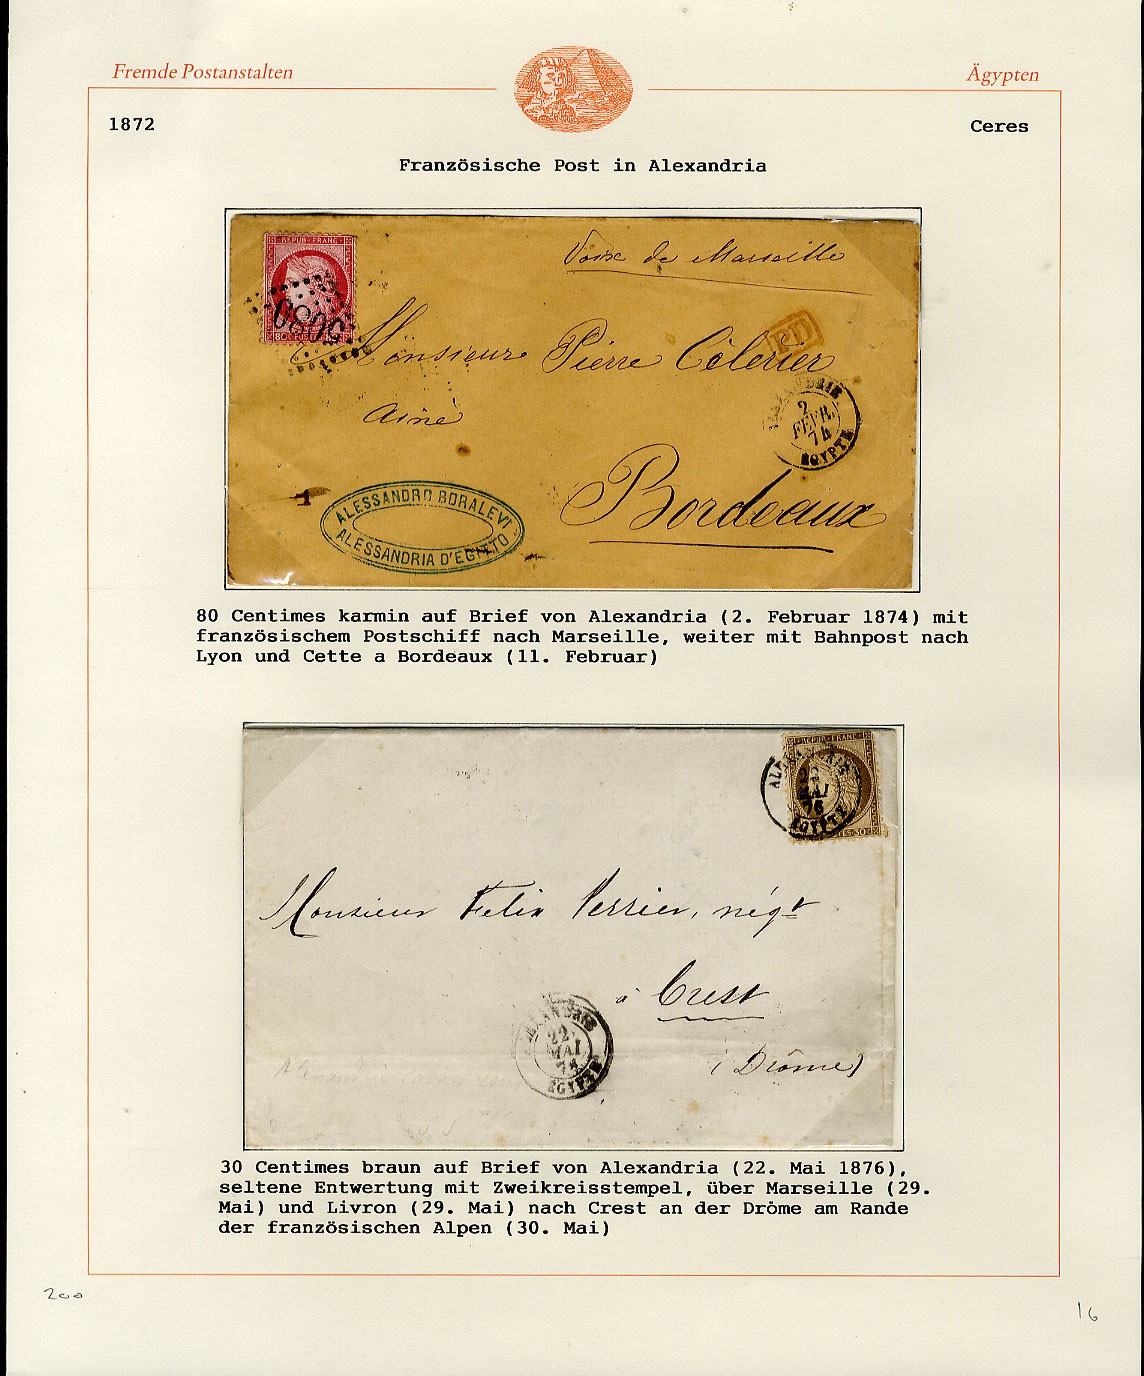 Fremde Postanstalten
Ägypten
1872
Ceres
Französische Post in Alexandria
REPUB·FRANC
80 C POSTES 80 C
5080
Voie de Marseille
PD
Monsieur Pierre Célerier
Ainé
ALEXANDRIE
2
FÉVR.
74
EGYPTE
Bordeaux
1
ALESSANDRO BORALEVI
ALESSANDRIA D'EGITTO
80 Centimes karmin auf Brief von Alexandria (2. Februar 1874) mit
französischem Postschiff nach Marseille, weiter mit Bahnpost nach
Lyon und Cette a Bordeaux (11. Februar)
REPUB·FRANC
ALEXANDRIE
22
MAI
76
EGYPTE
Monsieur Felix Perrier, négt
à Crest
(Drôme)
ALEXANDRIE
22
MAI
76
EGYPTE
30 Centimes braun auf Brief von Alexandria (22. Mai 1876),
seltene Entwertung mit Zweikreisstempel, über Marseille (29.
Mai) und Livron (29. Mai) nach Crest an der Drôme am Rande
der französischen Alpen (30. Mai)
200
16